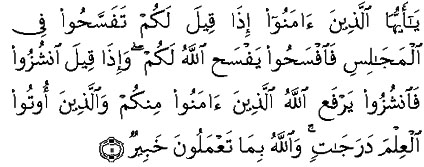 يَـٰٓأَيُّهَا ٱلَّذِينَ ءَامَنُوٓا۟ إِذَا قِيلَ لَكُمْ تَفَسَّحُوا۟ فِى
ٱلْمَجَـٰلِسِ فَٱفْسَحُوا۟ يَفْسَحِ ٱللَّهُ لَكُمْ ۖ وَإِذَا قِيلَ ٱنشُزُوا۟
فَٱنشُزُوا۟ يَرْفَعِ ٱللَّهُ ٱلَّذِينَ ءَامَنُوا۟ مِنكُمْ وَٱلَّذِينَ أُوتُوا۟
ٱلْعِلْمَ دَرَجَـٰتٍ ۚ وَٱللَّهُ بِمَا تَعْمَلُونَ خَبِيرٌ ۝١١